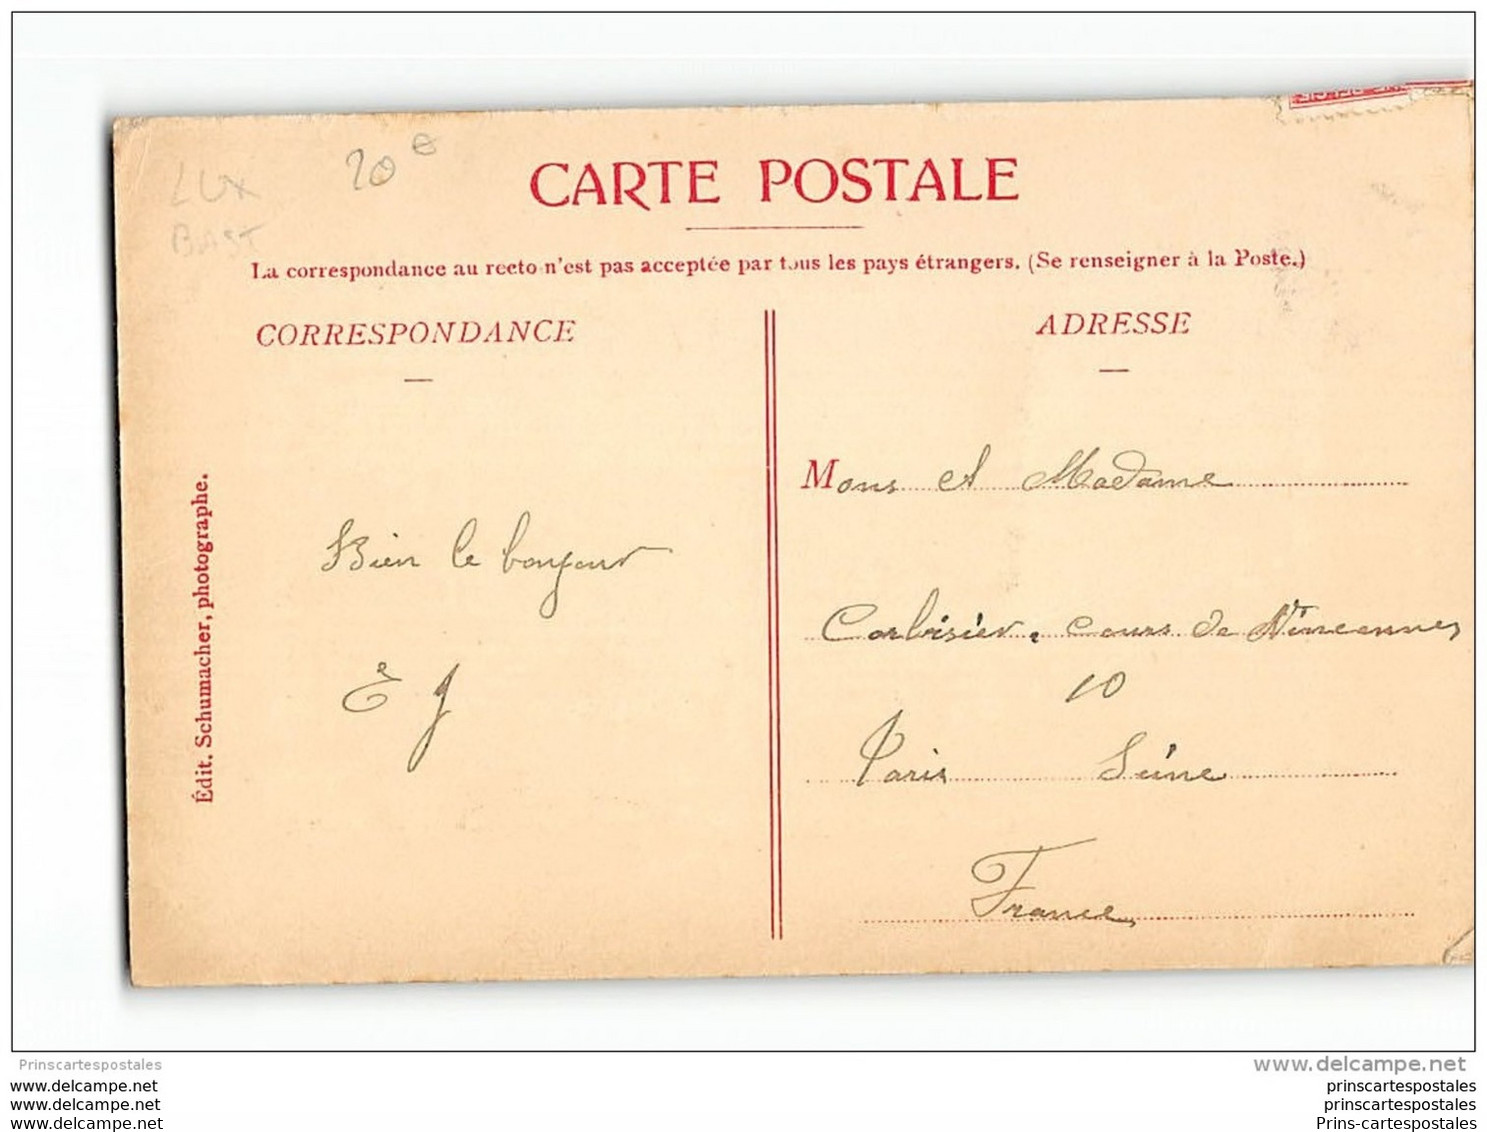 LUX
BAST
20 €
CARTE POSTALE
La correspondance au recto n'est pas acceptée par tous les pays étrangers. (Se renseigner à la Poste.)
CORRESPONDANCE
ADRESSE
Édit. Schumacher, photographe.
Bien le bonjour
E J
Mons et Madame
Corbisier, cours de Vincennes
10
Paris Seine
France
Prinscartespostales
www.delcampe.net
www.delcampe.net
www.delcampe.net
www.delcampe.net
prinscartespostales
prinscartespostales
Prins-cartespostales